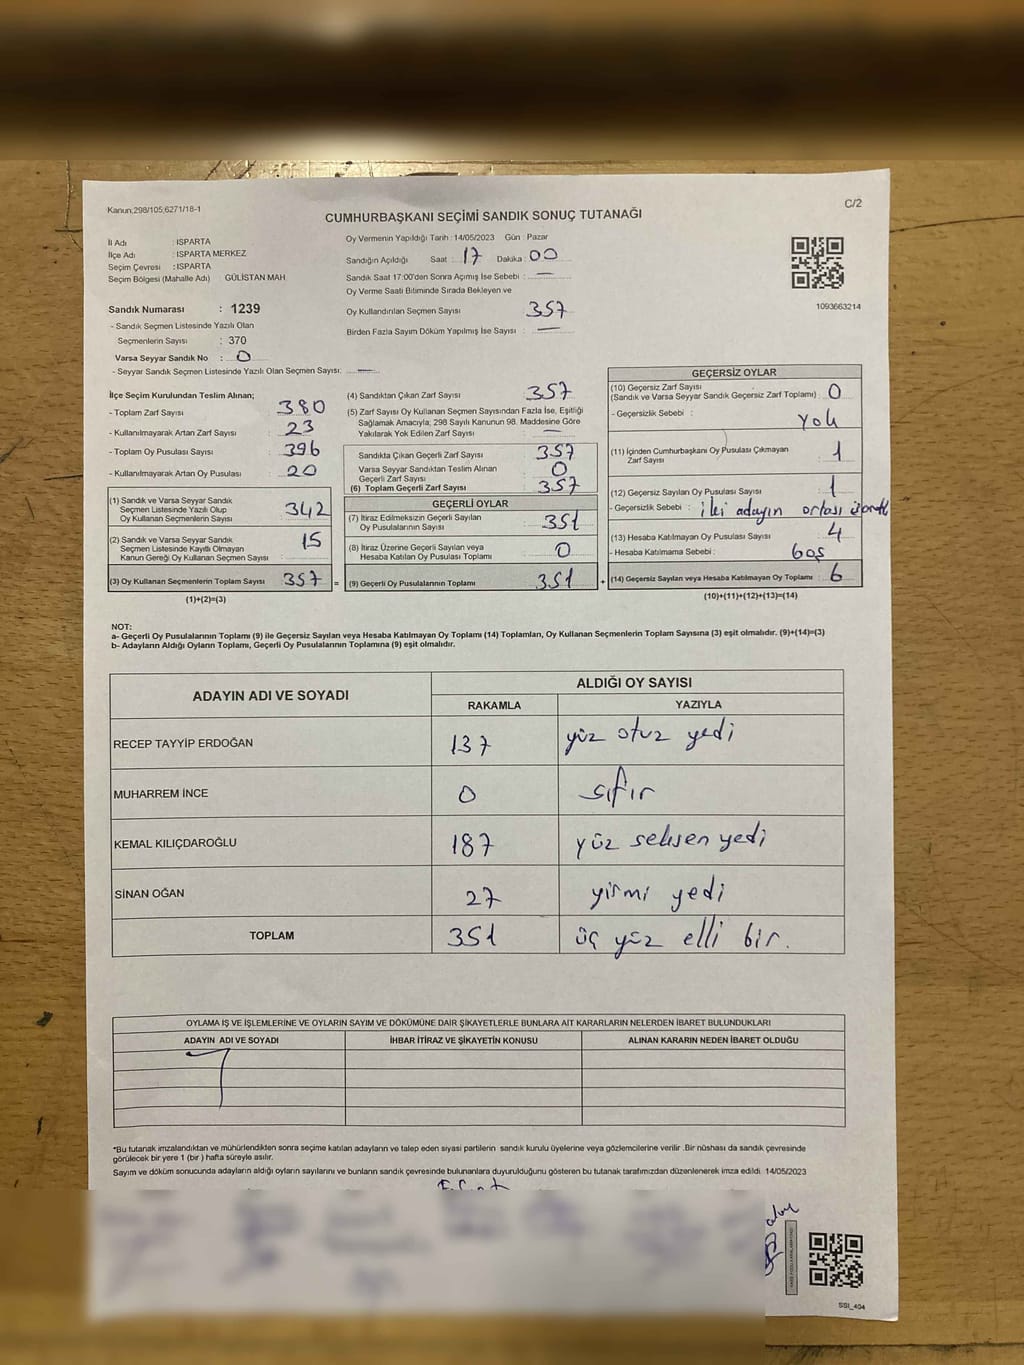 Kanun:298/105;6271/18-1
C/2
CUMHURBAŞKANI SEÇİMİ SANDIK SONUÇ TUTANAĞI
İl Adı : ISPARTA
İlçe Adı : ISPARTA MERKEZ
Seçim Çevresi : ISPARTA
Seçim Bölgesi (Mahalle Adı) GÜLİSTAN MAH
Sandık Numarası : 1239
- Sandık Seçmen Listesinde Yazılı Olan
Seçmenlerin Sayısı : 370
Varsa Seyyar Sandık No : 0
- Seyyar Sandık Seçmen Listesinde Yazılı Olan Seçmen Sayısı: —
Oy Vermenin Yapıldığı Tarih : 14/05/2023 Gün : Pazar
Sandığın Açıldığı Saat : 17 Dakika : 00
Sandık Saat 17:00'den Sonra Açımış İse Sebebi : —
Oy Verme Saati Bitiminde Sırada Bekleyen ve
Oy Kullandırılan Seçmen Sayısı : 357
Birden Fazla Sayım Döküm Yapılmış İse Sayısı : —
1093663214
İlçe Seçim Kurulundan Teslim Alınan;
- Toplam Zarf Sayısı : 380
- Kullanılmayarak Artan Zarf Sayısı : 23
- Toplam Oy Pusulası Sayısı : 396
- Kullanılmayarak Artan Oy Pusulası : 20
(1) Sandık ve Varsa Seyyar Sandık
Seçmen Listesinde Yazılı Olup
Oy Kullanan Seçmenlerin Sayısı : 342
(2) Sandık ve Varsa Seyyar Sandık
Seçmen Listesinde Kayıtlı Olmayan
Kanun Gereği Oy Kullanan Seçmen Sayısı : 15
(3) Oy Kullanan Seçmenlerin Toplam Sayısı : 357 =
(1)+(2)=(3)
(4) Sandıktan Çıkan Zarf Sayısı : 357
(5) Zarf Sayısı Oy Kullanan Seçmen Sayısından Fazla İse, Eşitliği
Sağlamak Amacıyla; 298 Sayılı Kanunun 98. Maddesine Göre
Yakılarak Yok Edilen Zarf Sayısı : —
Sandıkta Çıkan Geçerli Zarf Sayısı : 357
Varsa Seyyar Sandıktan Teslim Alınan
Geçerli Zarf Sayısı : 0
(6) Toplam Geçerli Zarf Sayısı : 357
GEÇERLİ OYLAR
(7) İtiraz Edilmeksizin Geçerli Sayılan
Oy Pusulalarının Sayısı : 351
(8) İtiraz Üzerine Geçerli Sayılan veya
Hesaba Katılan Oy Pusulası Toplamı : 0
(9) Geçerli Oy Pusulalarının Toplamı : 351 +
GEÇERSİZ OYLAR
(10) Geçersiz Zarf Sayısı
(Sandık ve Varsa Seyyar Sandık Geçersiz Zarf Toplamı) : 0
- Geçersizlik Sebebi : Yok
(11) İçinden Cumhurbaşkanı Oy Pusulası Çıkmayan
Zarf Sayısı : 1
(12) Geçersiz Sayılan Oy Pusulası Sayısı : 1
- Geçersizlik Sebebi : iki adayın ortası
(13) Hesaba Katılmayan Oy Pusulası Sayısı : 4
- Hesaba Katılmama Sebebi : boş
(14) Geçersiz Sayılan veya Hesaba Katılmayan Oy Toplamı : 6
(10)+(11)+(12)+(13)=(14)
NOT:
a- Geçerli Oy Pusulalarının Toplamı (9) ile Geçersiz Sayılan veya Hesaba Katılmayan Oy Toplamı (14) Toplamları, Oy Kullanan Seçmenlerin Toplam Sayısına (3) eşit olmalıdır. (9)+(14)=(3)
b- Adayların Aldığı Oyların Toplamı, Geçerli Oy Pusulalarının Toplamına (9) eşit olmalıdır.
ADAYIN ADI VE SOYADI
ALDIĞI OY SAYISI
RAKAMLA YAZIYLA
RECEP TAYYİP ERDOĞAN 137 yüz otuz yedi
MUHARREM İNCE 0 sıfır
KEMAL KILIÇDAROĞLU 187 yüz seksen yedi
SİNAN OĞAN 27 yirmi yedi
TOPLAM 351 üç yüz elli bir.
OYLAMA İŞ VE İŞLEMLERİNE VE OYLARIN SAYIM VE DÖKÜMÜNE DAİR ŞİKAYETLERLE BUNLARA AİT KARARLARIN NELERDEN İBARET BULUNDUKLARI
ADAYIN ADI VE SOYADI İHBAR İTİRAZ VE ŞİKAYETİN KONUSU ALINAN KARARIN NEDEN İBARET OLDUĞU
*Bu tutanak imzalandıktan ve mühürlendikten sonra seçime katılan adayların ve talep eden siyasi partilerin sandık kurulu üyelerine veya gözlemcilerine verilir .Bir nüshası da sandık çevresinde
görülecek bir yere 1 (bir ) hafta süreyle asılır.
Sayım ve döküm sonucunda adayların aldığı oyların sayılarını ve bunların sandık çevresinde bulunanlara duyurulduğunu gösteren bu tutanak tarafımızdan düzenlenerek imza edildi. 14/05/2023
SSI_404